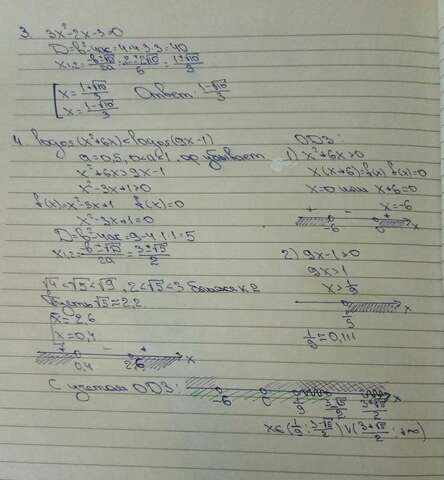 3. 3x²-2x-3=0
D=b²-4ac=4+4·3·3=40
x1,2=(-b±√D)/2a=(2±2√10)/6=(1±√10)/3
[x=(1+√10)/3
x=(1-√10)/3 Ответ: (1-√10)/3
4. log0,5(x²+6x)=log0,5(9x-1)
a=0,5, 0<a<1, убывает
x²+6x>9x-1
x²-3x+1>0
f(x)=x²-3x+1 f(x)=0
x²-3x+1=0
D=b²-4ac=9-4·1·1=5
x1,2=(-b±√D)/2a=(3±√5)/2
√4<√5<√9, 2<√5<3 ближе к 2
Пусть √5≈2,2
[x=2,6
x=0,4
+ - + x
0,4 2,6
ОДЗ:
1) x²+6x>0
x(x+6)=f(x) f(x)=0
x=0 или x+6=0
x=-6
+ - +
-6 0 x
2) 9x-1>0
9x>1
x>1/9
1/9 x
1/9≈0,111
С учетом ОДЗ:
-6 0 1/9 (3-√5)/2 (3+√5)/2 x
x∈(1/9; (3-√5)/2)∨((3+√5)/2; +∞)